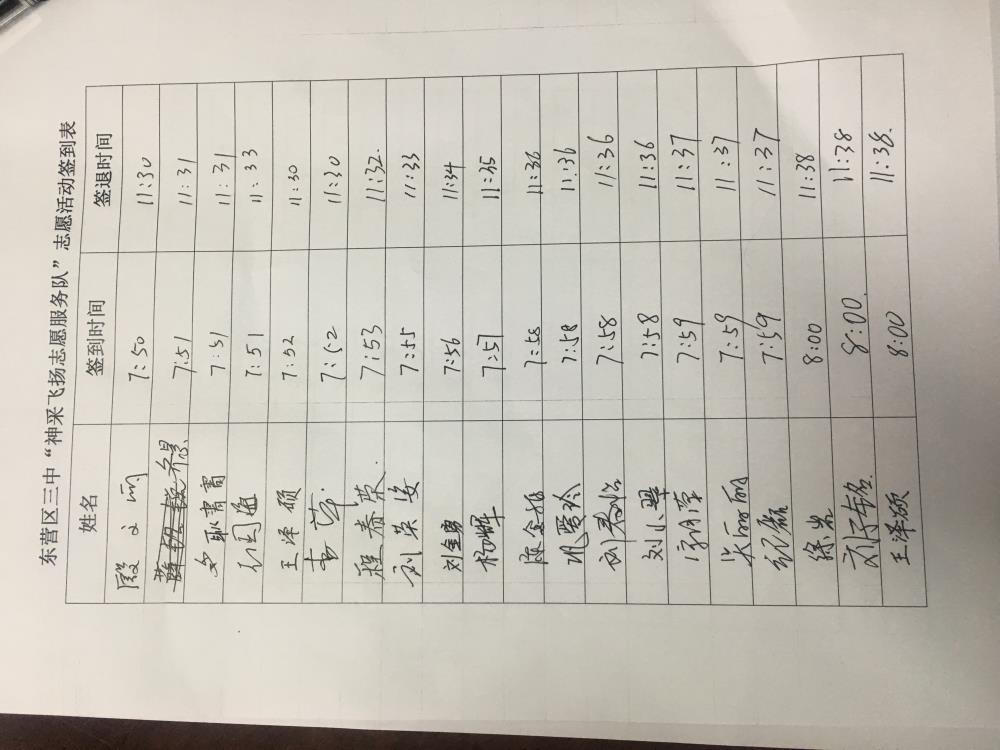 东营区三中“神采飞扬志愿服务队”志愿活动签到表
姓名 签到时间 签退时间
殷文丽 7:50 11:30
7:51 11:31
7:51 11:31
7:51 11:33
王泽硕 7:52 11:30
李萍 7:52 11:30
程春荣 7:53 11:32
刘英俊 7:55 11:33
刘金勇 7:56 11:34
杨晖 7:57 11:35
陈金 7:58 11:36
7:58 11:36
刘春 7:58 11:36
刘小翠 7:58 11:36
7:59 11:37
丽丽 7:59 11:37
纪磊 7:59 11:37
徐 8:00 11:38
刘子铭 8:00 11:38
王泽硕 8:00 11:38